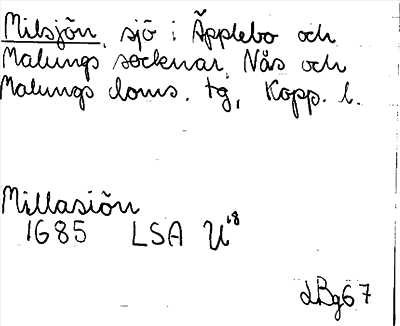 Milsjön, sjö i Äpplebo och
Malungs socknar, Nås och
Malungs doms. tg, Kopp. l.
Millasiön
1685 LSA U18
LBg67